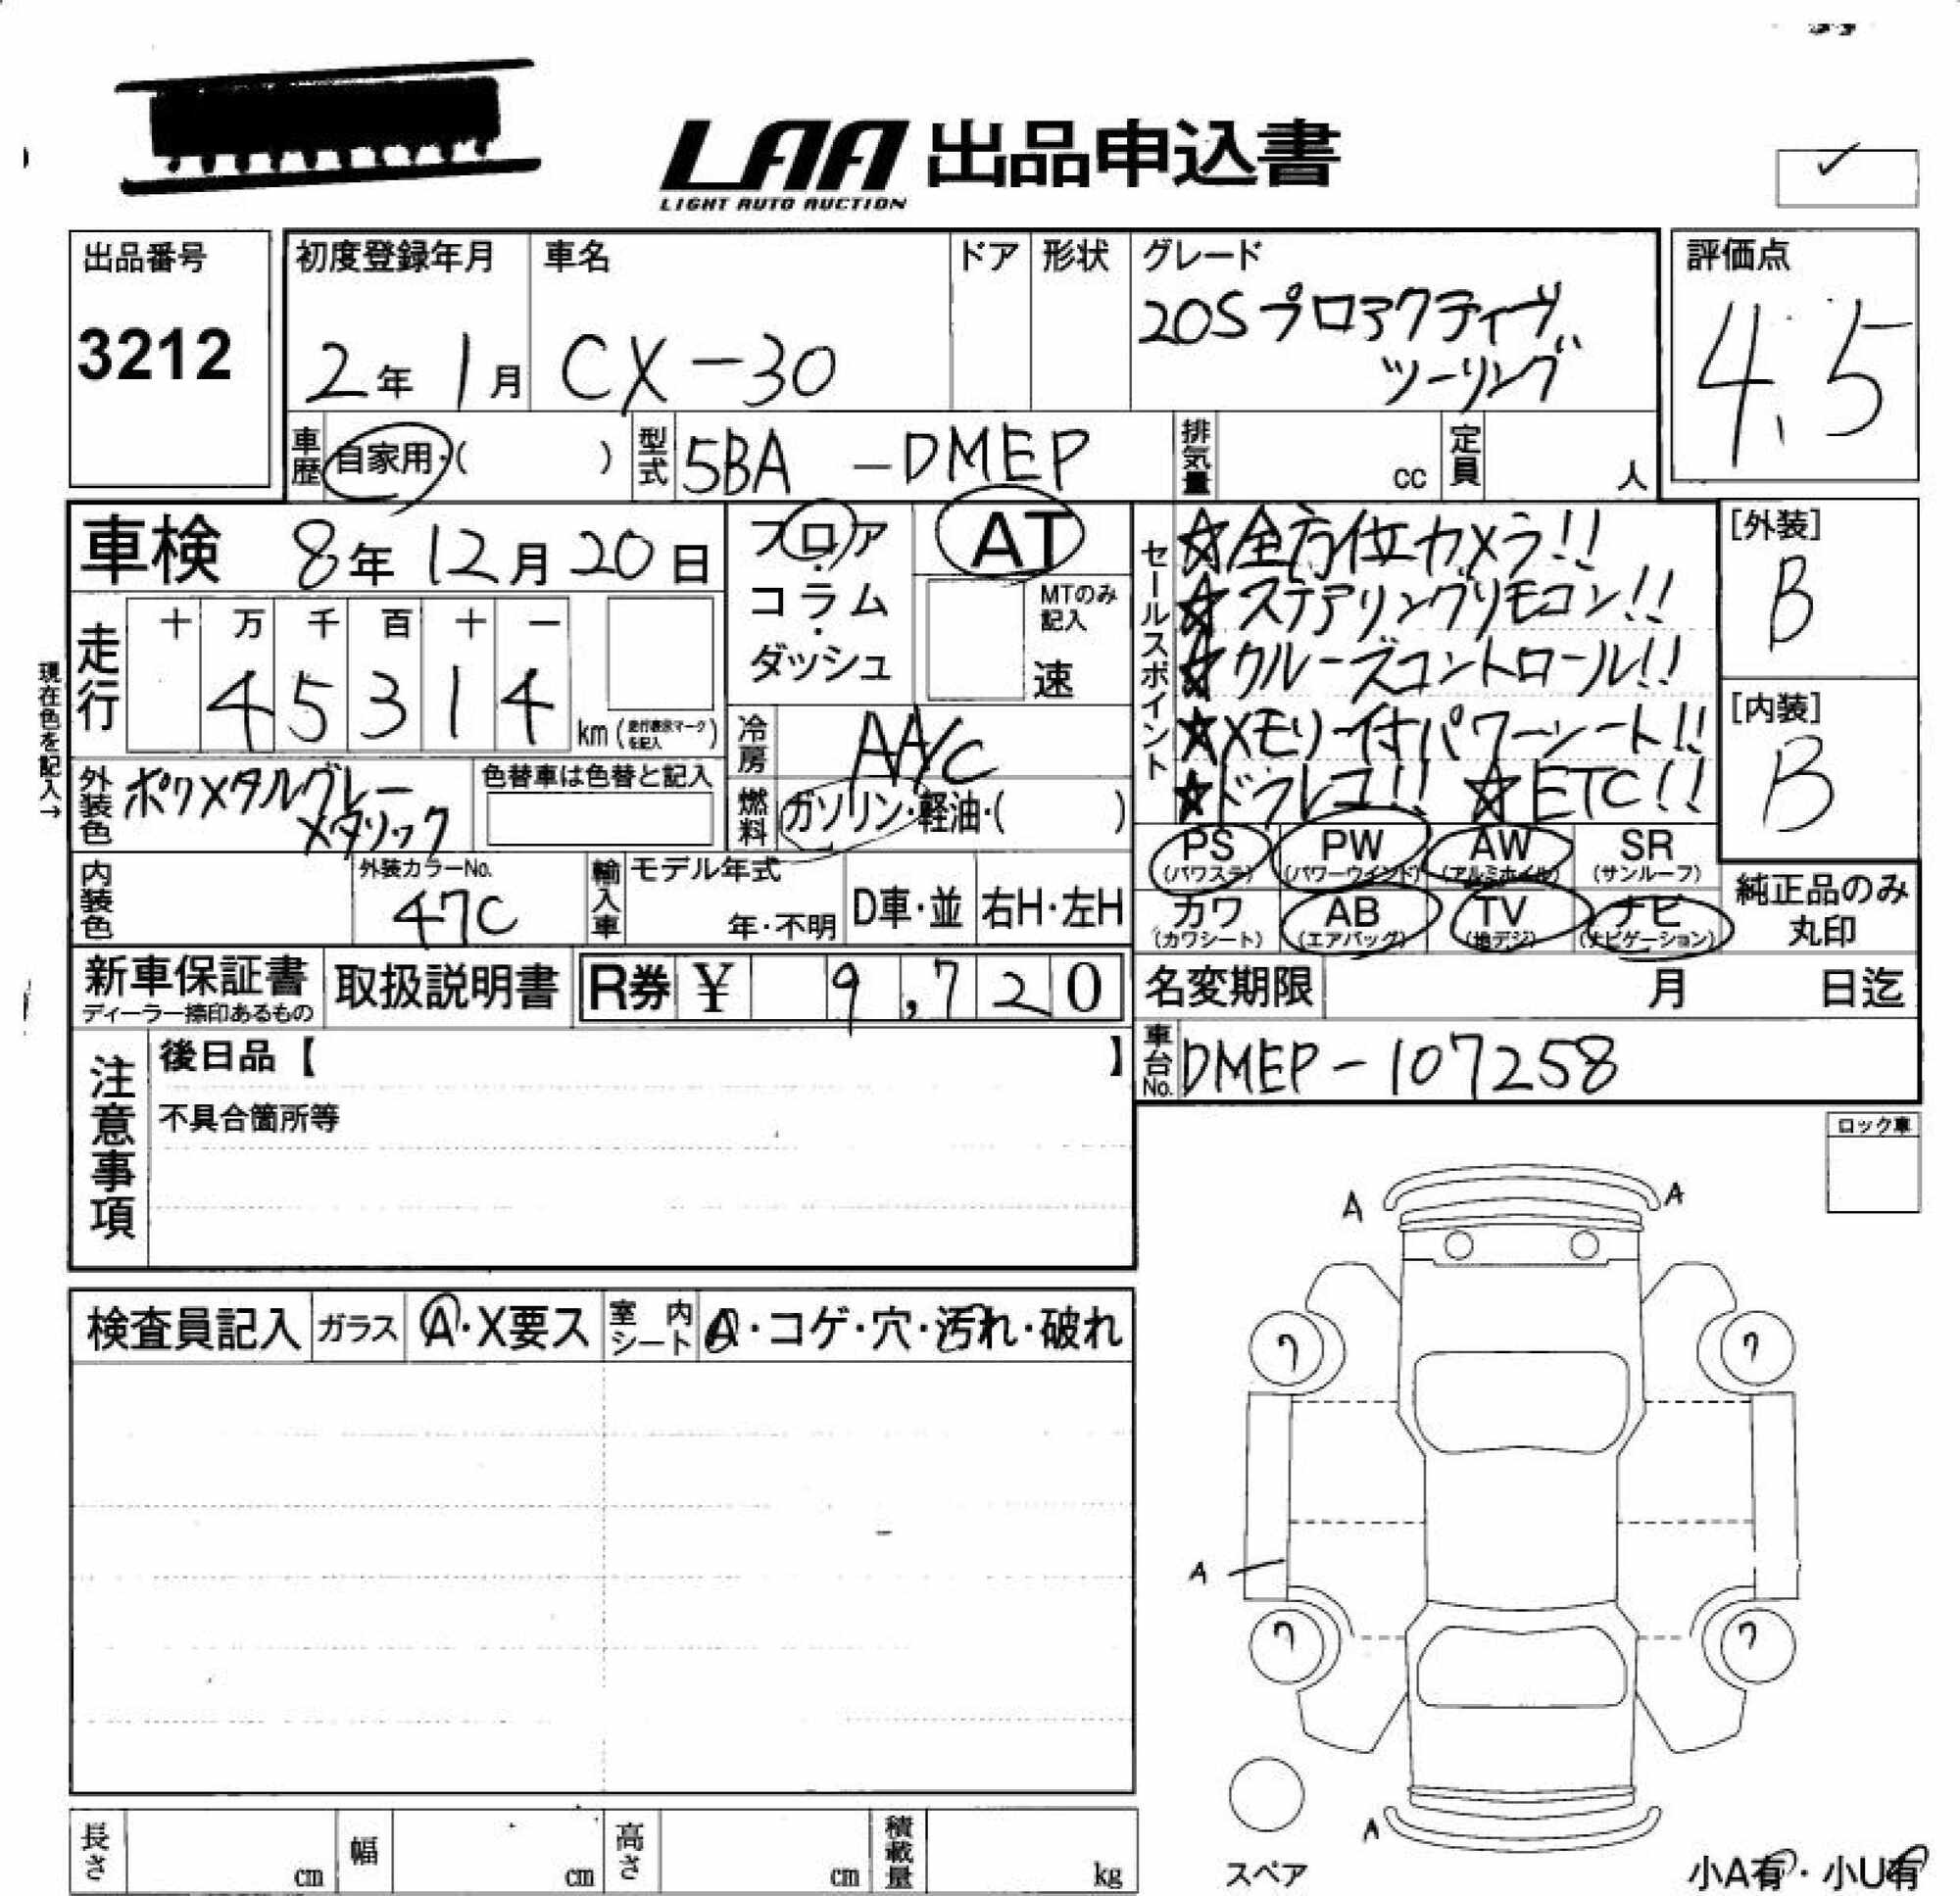 LAA 出品申込書
LIGHT AUTO AUCTION
出品番号
3212
初度登録年月
2年 1月
車名
CX-30
ドア
形状
グレード
20S プロアクティブ
ツーリング
評価点
4.5
車歴
自家用・( )
型式
5BA -DMEP
排気量
cc
定員
人
車検 8年 12月 20日
フロア
コラム
・
ダッシュ
AT
MTのみ
記入
速
セールスポイント
☆全方位カメラ!!
☆ステアリングリモコン!!
☆クルーズコントロール!!
★メモリー付パワーシート!!
★ドラレコ!! ☆ETC!!
[外装]
B
[内装]
B
現在色を記入→
走行
十 万 千 百 十 一
4 5 3 1 4
km (走行表示マークを記入)
冷房
AA/C
燃料
ガソリン・軽油・( )
外装色
ポリメタルグレー
メタリック
色替車は色替と記入
内装色
外装カラーNo.
47C
輸入車
モデル年式
年・不明
D車・並
右H・左H
PS
(パワステ)
PW
(パワーウインド)
AW
(アルミホイル)
SR
(サンルーフ)
カワ
(カワシート)
AB
(エアバッグ)
TV
(地デジ)
ナビ
(ナビゲーション)
純正品のみ
丸印
新車保証書
ディーラー捺印あるもの
取扱説明書
R券 ¥ 9,720
名変期限 月 日迄
車台No.
DMEP-107258
注意事項
後日品【 】
不具合箇所等
ロック車
検査員記入
ガラス
A・X要ス
室内シート
A・コゲ・穴・汚れ・破れ
A
A
A
A
スペア
小A有・小U有
長さ
cm
幅
cm
高さ
cm
積載量
kg